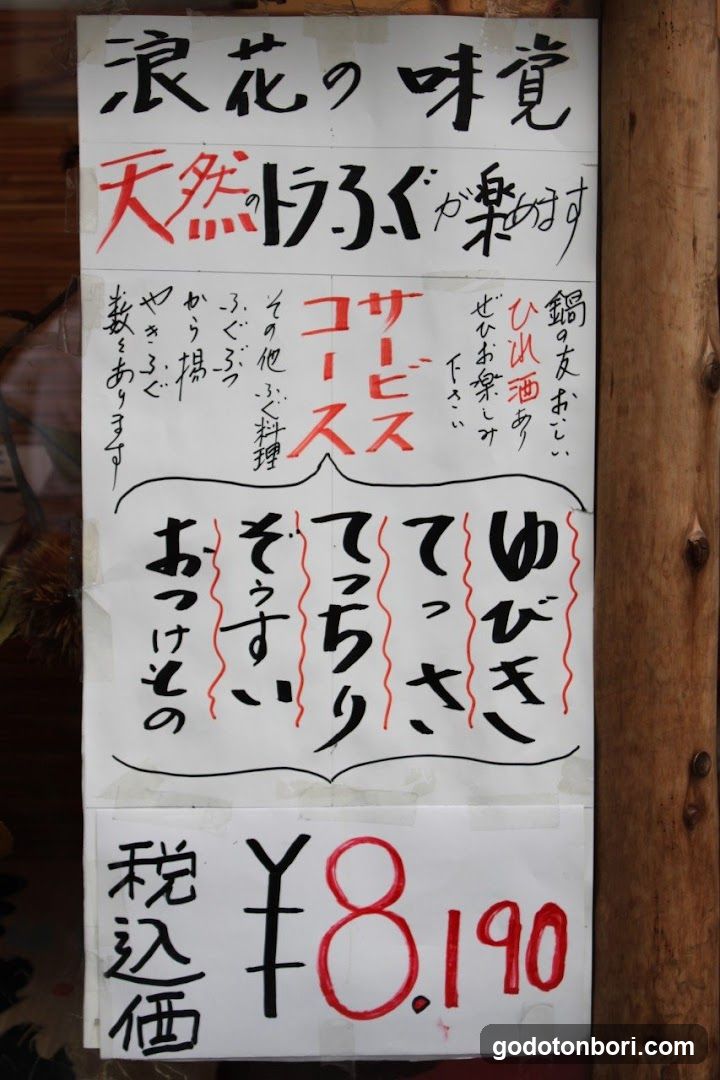 浪花の味覚
天然のトラふぐが楽めます
鍋の友おいしい
ひれ酒あり
ぜひお楽しみ
下さい
サービス
コース
その他ふぐ料理
ふぐぶつ
から揚
やきふぐ
数々あります
ゆびき
てっさ
てっちり
ぞうすい
おつけもの
税込価
¥8.190
godotonbori.com